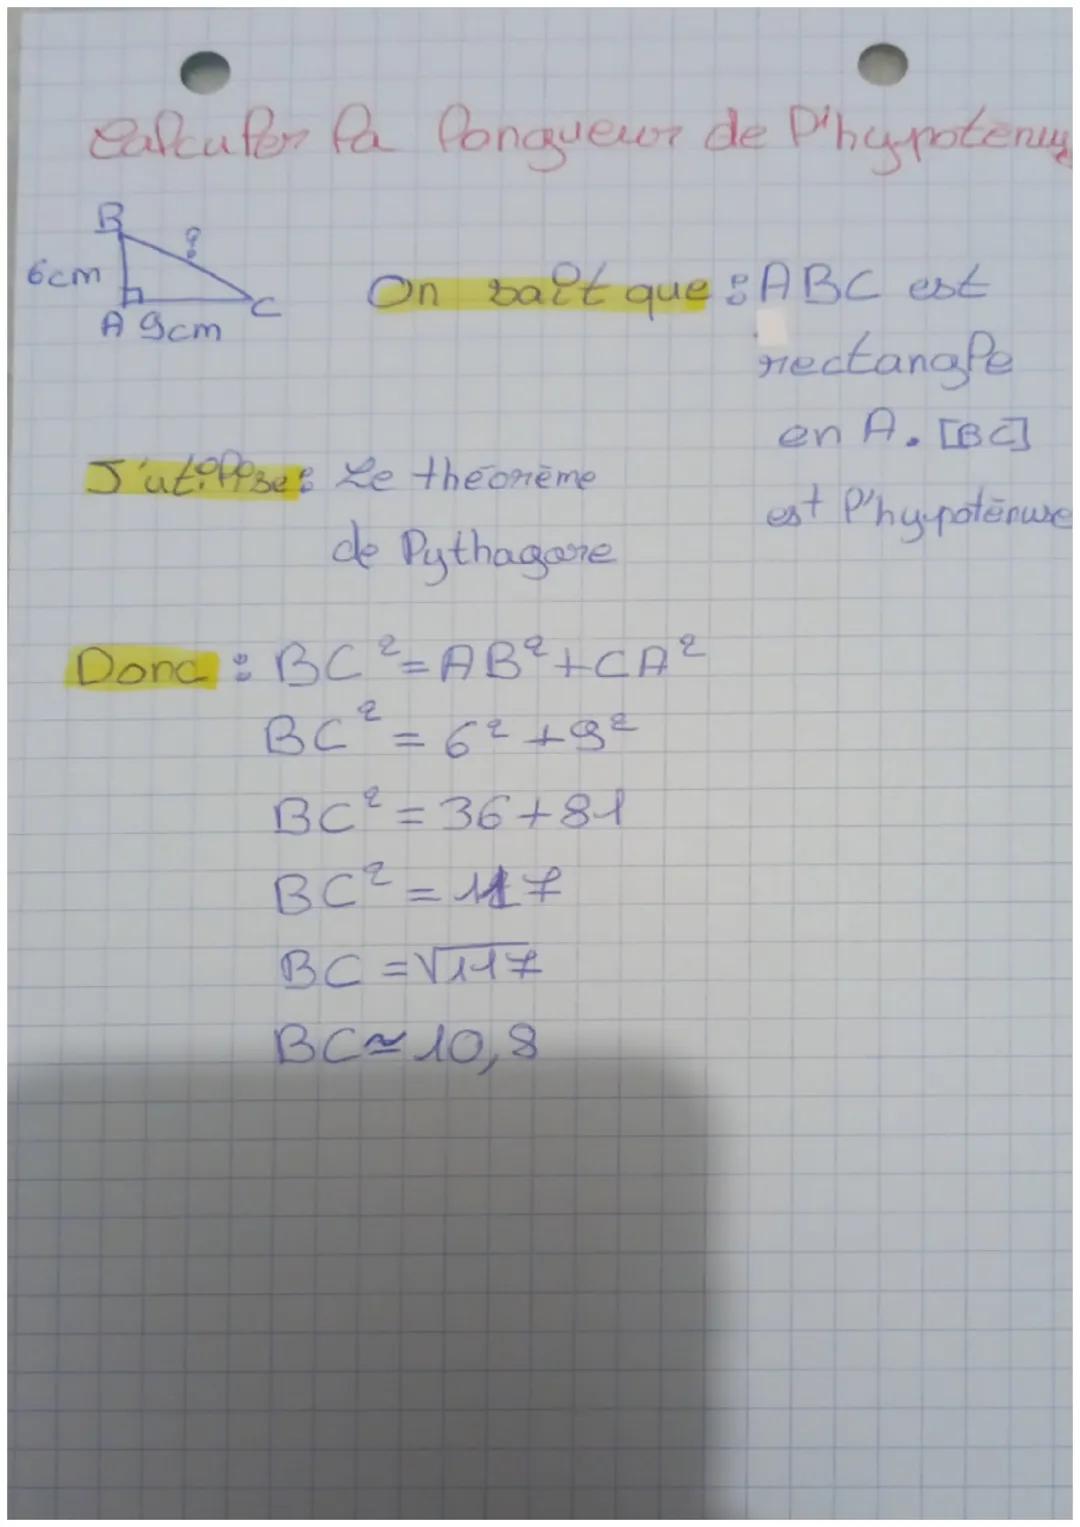 Calculer la longueur de l'hypoténus
B
?
6cm
C
A 9cm
On sait que : ABC est
rectangle
en A. [BC]
est l'hypoténuse
J'utilise : Le théorème
de Pythagore
Donc : BC² = AB² + CA²
BC² = 6² + 9²
BC² = 36 + 81
BC² = 117
BC = √117
BC ≃ 10,8